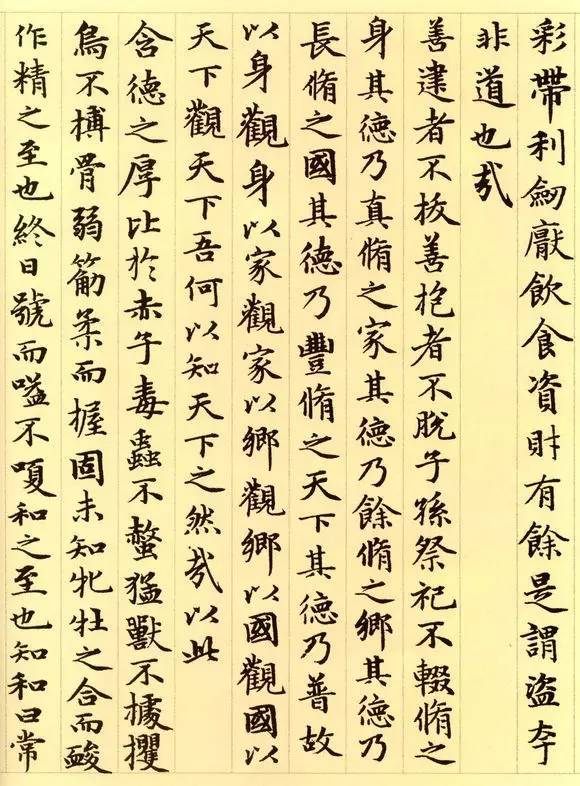 彩帶利劒厭飲食資財有餘是謂盜夸
非道也哉
善建者不拔善抱者不脫子孫祭祀不輟脩之
身其德乃真脩之家其德乃餘脩之鄉其德乃
長脩之國其德乃豐脩之天下其德乃普故
以身觀身以家觀家以鄉觀鄉以國觀國以
天下觀天下吾何以知天下之然哉以此
含德之厚比於赤子毒蟲不螫猛獸不據攫
鳥不搏骨弱筋柔而握固未知牝牡之合而酸
作精之至也終日號而嗌不嗄和之至也知和曰常